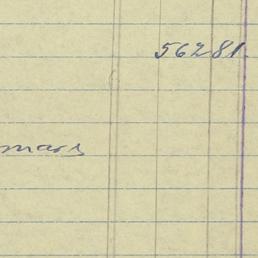 56281.
mars